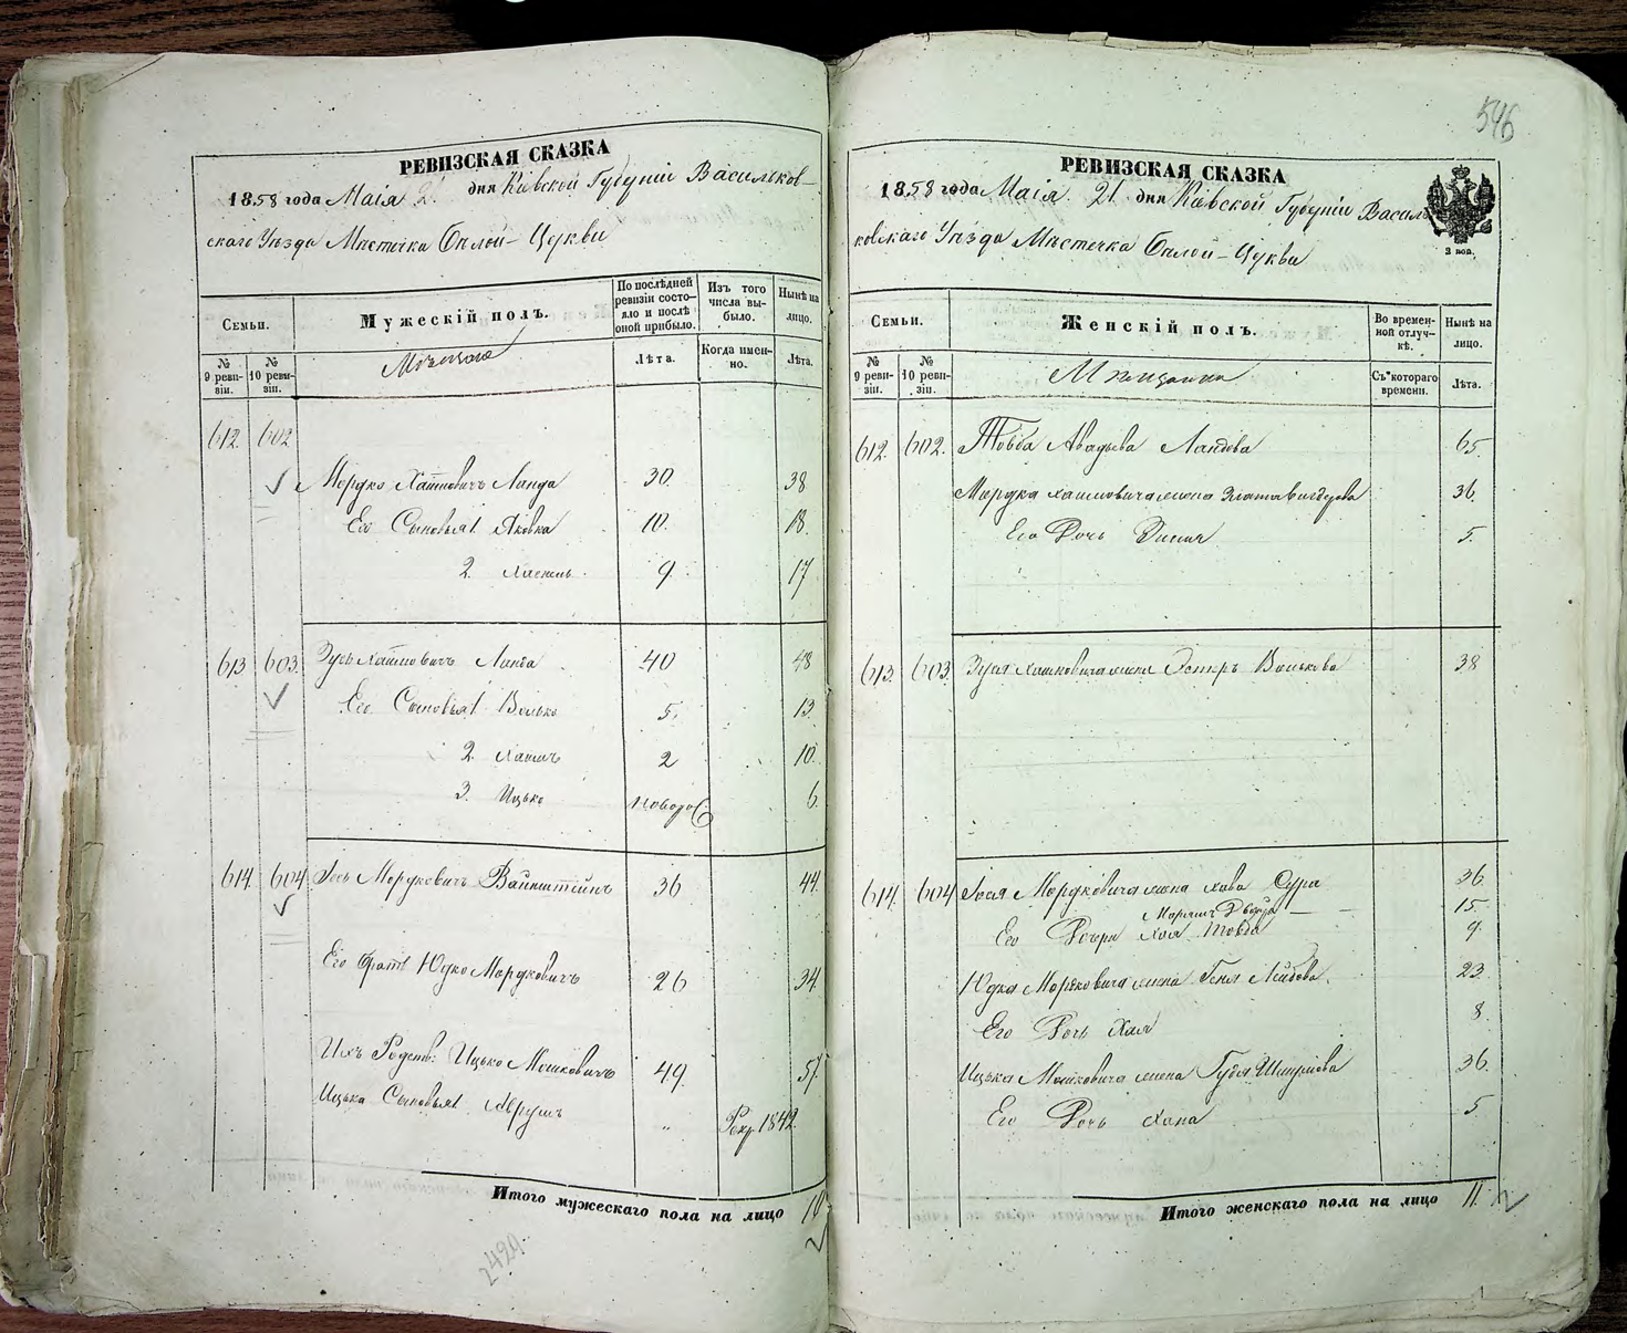 546
РЕВИЗСКАЯ СКАЗКА
1858 года Маія 21 дня Кіевской Губерніи Васильков-
скаго Уѣзда Мѣстечка Бѣлой-Церкви
Семьи.
Мужескій полъ.
По послѣдней ревизіи состояло и послѣ оной прибыло.
Изъ того числа выбыло.
Нынѣ на лицо.
№ 9 ревизіи.
№ 10 ревизіи.
Мѣщане
Лѣта.
Когда именно.
Лѣта.
612. 602
Мордко Хаимовичъ Ланда 30. 38
Его Сыновья 1. Яковка 10. 18.
2. 9. 17
613 603. Зусь Хаимовичъ Ланда 40 48
Его Сыновья 1. Волько 5. 13.
2. Хаимъ 2 10.
3. Ицько новорож 6.
614. 604 Іось Мордковичъ Вайнштейнъ 36 44.
Его братъ Юдко Мордковичъ 26 34.
Ихъ Родств: Ицько Мошковичъ 49. 57.
Ицька Сыновья 1. Аврумъ " Рекр. 1842.
Итого мужескаго пола на лицо 10
2429
РЕВИЗСКАЯ СКАЗКА
1858 года Маія 21. дня Кіевской Губерніи Василь-
ковскаго Уѣзда Мѣстечка Бѣлой-Церкви
3 коп.
Семьи.
Женскій полъ.
Во временной отлучкѣ.
Нынѣ на лицо.
№ 9 ревизіи.
№ 10 ревизіи.
Мѣщанки
Съ котораго времени.
Лѣта.
612. 602. Товба Авадьева Ландова 65.
Мордка Хаимовича жена Злата Вигдорова 36.
Его Дочь 5.
613. 603. Зуся Хаимовича жена Эстеръ Волькова 38
614. 604 Іося Мордковича жена Хава Сура 36.
Маріямъ Двойра — — 15.
Его Дочери Хая Товба 9.
Юдка Мордковича жена Геня Лейбова. 23.
Его Дочь Хая 8.
Ицька Мошковича жена Гудя Шмулева 36.
Его Дочь Хана 5
Итого женскаго пола на лицо 11.